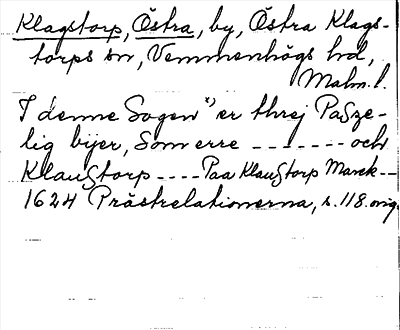 Klagstorp, Östra, by, Östra Klags-
torps sn, Vemmenhögs hd,
Malm. l.
I denne Sogen x) er threj Paßze-
lig bijer, Som erre ------- och
Klaußtorp ---- Paa Klaußtorp Marck --
1624 Prästrelationerna, s. 118. orig.